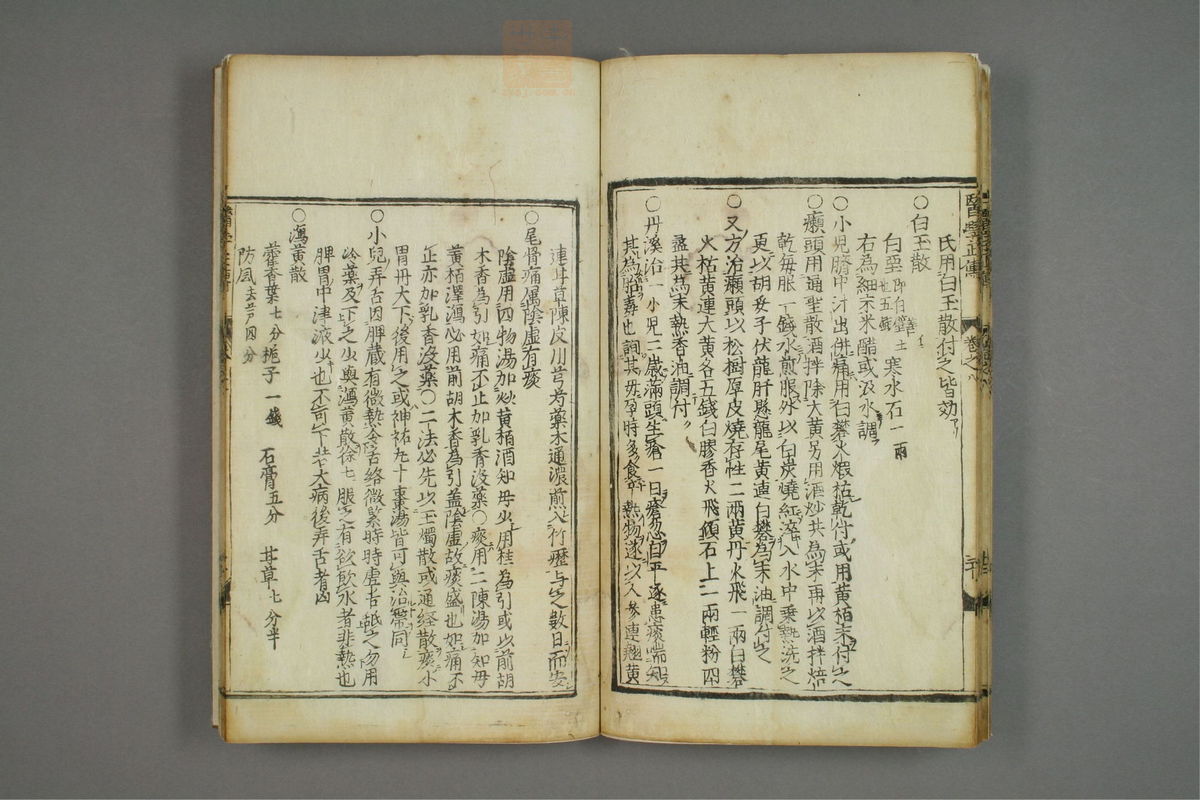 氏用白玉散付之皆効
○白玉散
白堊 即白善土也五錢 寒水石一兩
右為細末米醋或汲水調
○小児臍中汁出併痛用白礬火煆枯乾付或用黄栢末付之
○癩頭用通聖散酒拌除大黄另用酒炒共為末再以酒拌焙
乾毎服一錢水煎服外以白炭燒紅淬入水中乗熱洗之
更以胡荽子伏龍肝懸龍尾黄連白礬為末油調付之
○又方治癩頭以松樹厚皮燒存性二兩黄丹火飛一兩白礬
火枯黄連大黄各五錢白膠香火飛傾石上二兩輕粉四
盞共為末熱香油調付
○丹溪治一小児二歳滿頭生瘡一日瘡忽自平遂患痰喘知
其為胎毒也詞其母孕時多食辛熱物遂以人参連翹黄
連甘草陳皮川芎芍藥木通濃煎入竹瀝与之數日而安
○尾骨痛属陰虚有痰
陰虚用四物湯加炒黄栢酒知母少用桂為引或以前胡
木香為引如痛不止加乳香没藥○痰用二陳湯加知母
黄栢澤瀉必用前胡木香為引盖陰虚故痰盛也如痛不
止亦加乳香没藥○二法必先以玉燭散或通経散瀉水
胃丹大下後用之或神祐丸十棗湯皆可與治帶同
○小兒弄舌因脾蔵有微熱令舌絡微緊時時虚舌舐之勿用
冷藥及下之少與瀉黄散徐七服之有欲飲水者非熱也
脾胃中津液少也不可下若大病後弄舌者凶
○瀉黄散
藿香葉七分 梔子一錢 石膏五分 甘草七分半
防風去芦四分
巻之八